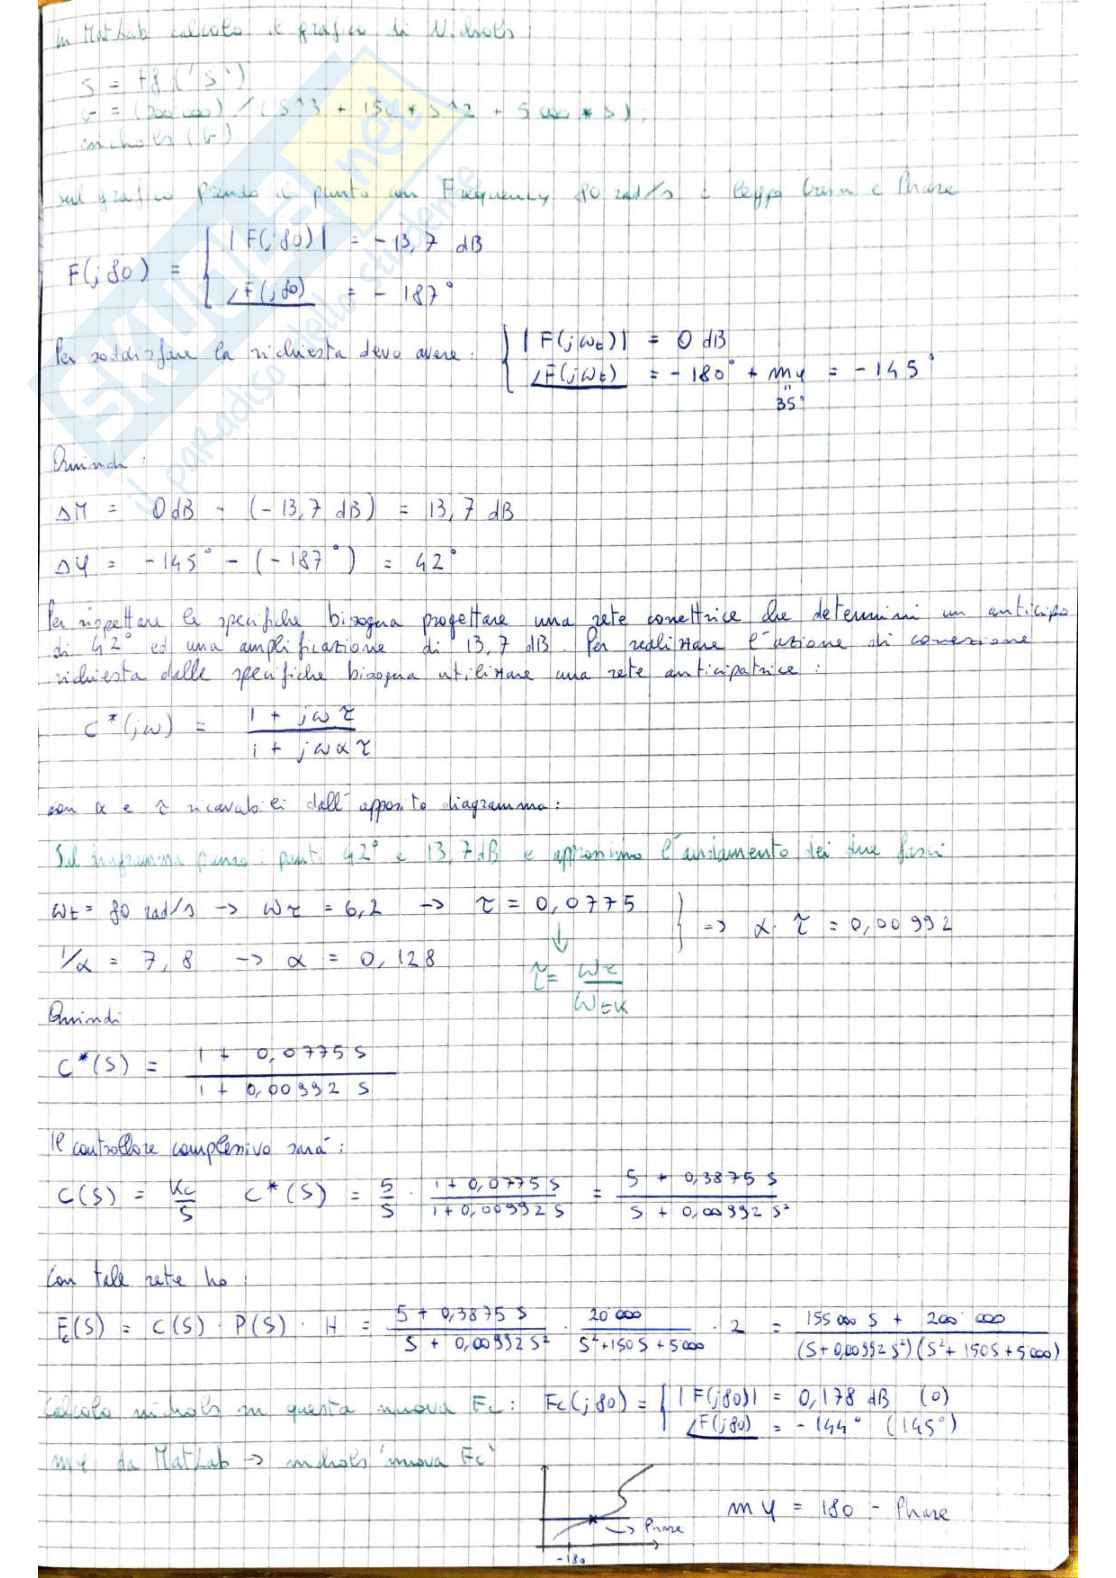 In MatLab calcolo il grafico di Nichols:
S = tf('s')
= (200000) / (S^3 + 150 * S^2 + 5000 * S);
nichols(
sul grafico prendo il punto con Frequency 80 rad/s e leggo Gain e Phase
F(j80) = { |F(j80)| = - 13,7 dB
∠F(j80) = - 187°
Per soddisfare la richiesta devo avere: { |F(jωt)| = 0 dB
∠F(jωt) = - 180° + mφ = - 145°
"
35°
Quindi:
ΔM = 0dB - (-13,7 dB) = 13,7 dB
Δφ = -145° - (-187°) = 42°
Per rispettare le specifiche bisogna progettare una rete correttrice che determini un anticipo
di 42° ed una amplificazione di 13,7 dB. Per realizzare l'azione di correzione
richiesta dalle specifiche bisogna utilizzare una rete anticipatrice:
C*(jω) = (1 + jωτ) / (1 + jωατ)
con α e τ ricavabili dall'apposito diagramma:
Sul diagramma i punti 42° e 13,7dB e approssimo l'andamento dei due fasci
ωt = 80 rad/s -> ωτ = 6,2 -> τ = 0,0775
1/α = 7,8 -> α = 0,128 } => α·τ = 0,00992
↓
τ = ωτ / ωtK
Quindi
C*(S) = (1 + 0,0775 S) / (1 + 0,00992 S)
Il controllore complessivo sarà:
C(S) = Kc/S C*(S) = 5/S · (1 + 0,0775 S) / (1 + 0,00992 S) = (5 + 0,3875 S) / (S + 0,00992 S²)
Con tale rete ho:
Fc(S) = C(S) · P(S) H = (5 + 0,3875 S) / (S + 0,00992 S²) · 20 000 / (S² + 150 S + 5000) · 2 = (155 000 S + 200 000) / ((S + 0,00992 S²)(S² + 150 S + 5000))
Calcolo nichols su questa nuova Fc: Fc(j80) = { |F(j80)| = 0,178 dB (0)
∠F(j80) = - 144° (145°)
mφ da MatLab -> nichols nuova Fc
-> Phase
-180
mφ = 180 - Phase
SKUOLA.net
il paradiso dello studente